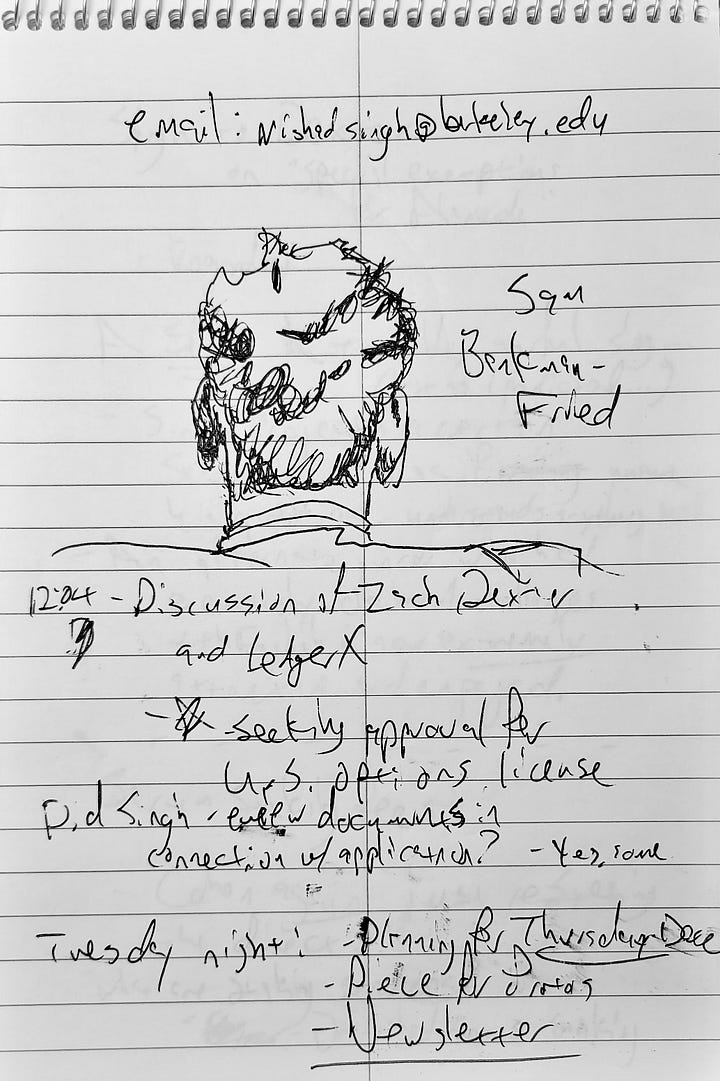 email: nishadsingh@berkeley.edu
Sam
Bankman-
Fried
12:04 - Discussion of Zach Dexter
and LedgerX
- seeking approval for
U.S. options license
Did Singh review documents in
connection w/ application? - Yes, some
Tuesday night: - Planning for Thursday
- Piece for
- Newsletter